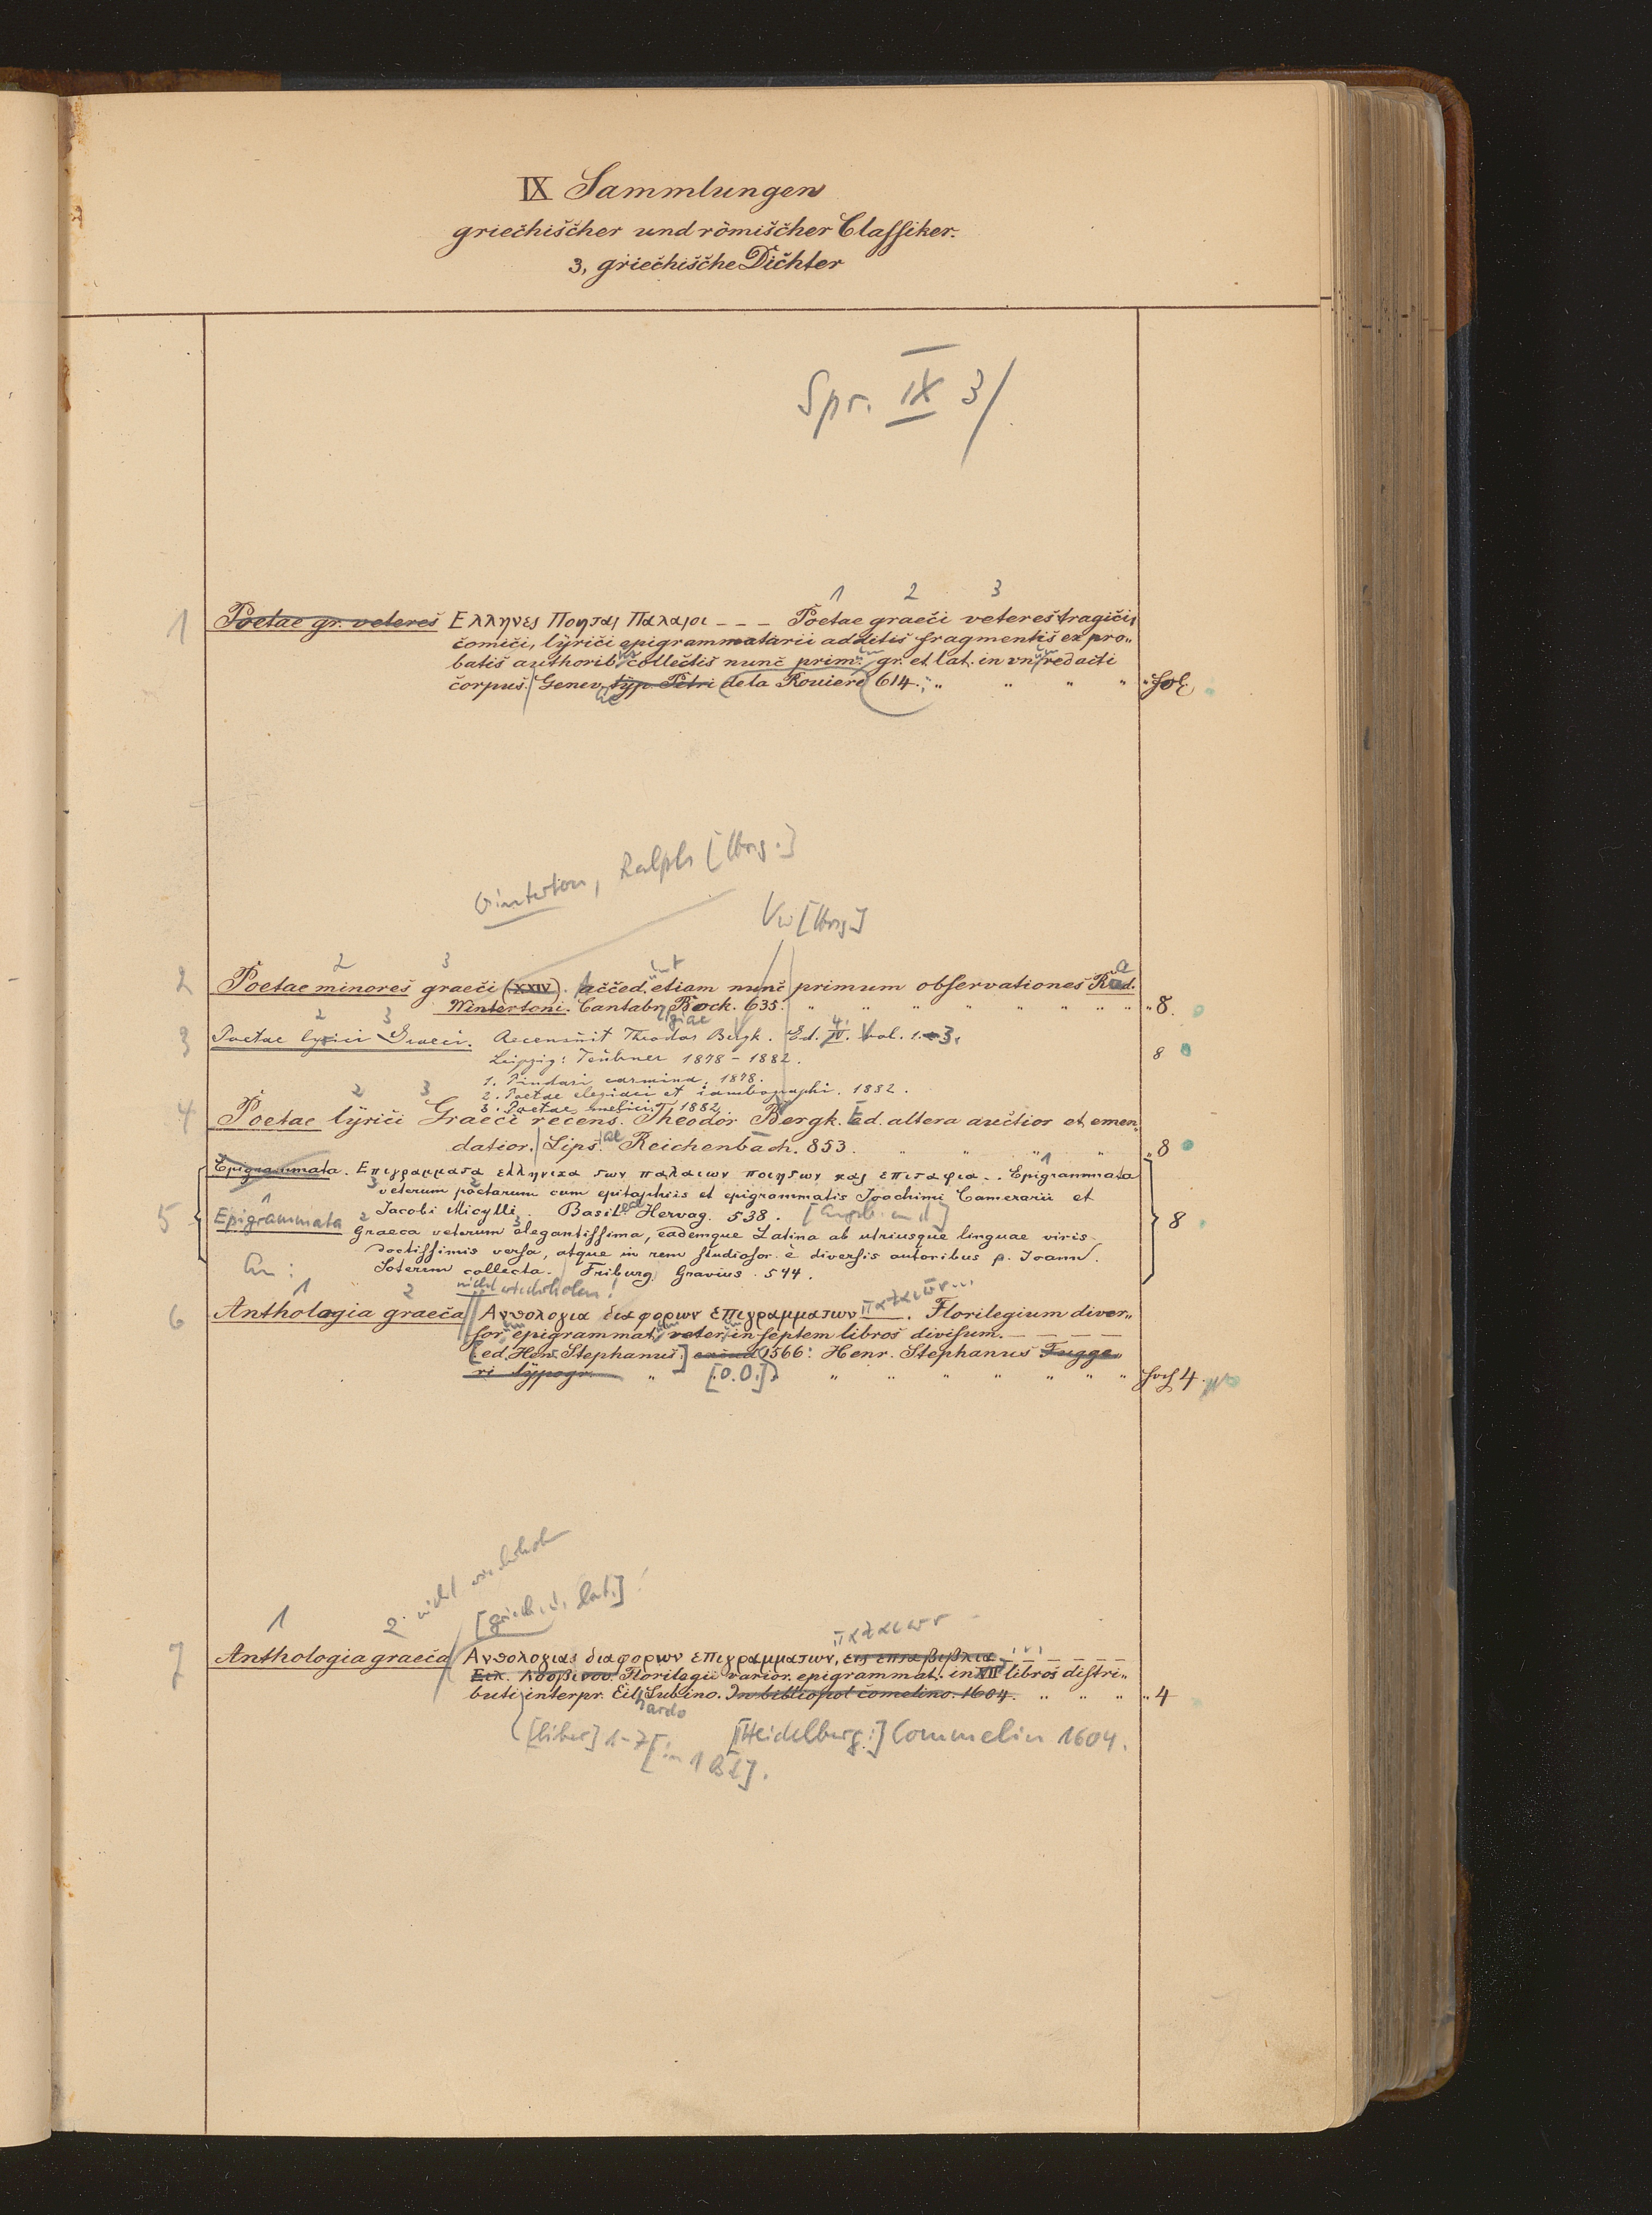 IX Sammlungen
griechischer und römischer Classiker.
3, griechische Dichter
Spr. IX 3/
1 2 3
1 Poetae gr. veteres Ελληνες Ποηται Παλαιοι - - - Poetae graeci veteres tragici,
comici, lyrici epigrammatarii additis fragmentis ex pro„
batis authorib. collectis nunc prim. gr. et lat. in vn. redacti
corpus. Genev. typ. Petri de la Rouiere 614. „ „ „ „ fol.
Winterton, Ralph [Hrsg.]
Vw [Hrsg]
2 3
2 Poetae minores graeci (XXIV). acced. etiam nunc primum observationes Rad.
Wintertoni. Cantabr. Bock. 635. „ „ „ „ „ „ „ 8.
giae
2 3
3 Poetae lyrici Graeci. Recensuit Theodor Bergk. Ed. IV. Vol. 1-3.
Leipzig: Teubner 1878-1882. 8
1. Pindari carmina. 1878.
2. Poetae elegiaci et iambographi. 1882.
3. Poetae melici. 1882
2 3
4 Poetae lyrici Graeci recens. Theodor Bergk. Ed. altera auctior et emen„
datior. Lips. Reichenbach. 853. „ „ „ 8
Epigrammata. Επιγραμματα ελληνικα των παλαιων ποιητων και επιταφια. . Epigrammata
veterum poetarum cum epitaphiis et epigrammatis Joachimi Camerarii et
Jacobi Micylli. Basil. Hervag. 538.
5 Epigrammata Graeca veterum elegantissima, eademque Latina ab utriusque linguae viris 8
doctissimis versa, atque in rem studiosor. e diversis autoribus p. Joann.
Soterem collecta. Friburg. Gravius. 544.
nicht wiederholen!
1 2
6 Anthologia graeca Ανθολογια διαφορων επιγραμματων παλαιων... Florilegium diver„
sor. epigrammat. veter. in septem libros divisum. - - - -
[ed. Henr. Stephanus.] 1566: Henr. Stephanus Fugge„
ri typogr. „ [o.O.] „ „ „ „ „ „ 4.
2. nicht wiederholen
1 [griech. u. lat.]
παλαιων
7 Anthologia graeca Ανθολογιας διαφορων επιγραμματων, εις επτα βιβλια - - -
Ειλ. Λοβινου. Florilegii varior. epigrammat. in VII libros distri„
buti interpr. Eil. Lubino. In bibliopol comelino. 1604. „ „ „ 4
hardo
[liber] 1-7 [in 1 Bd]. [Heidelberg:] Commelin 1604.